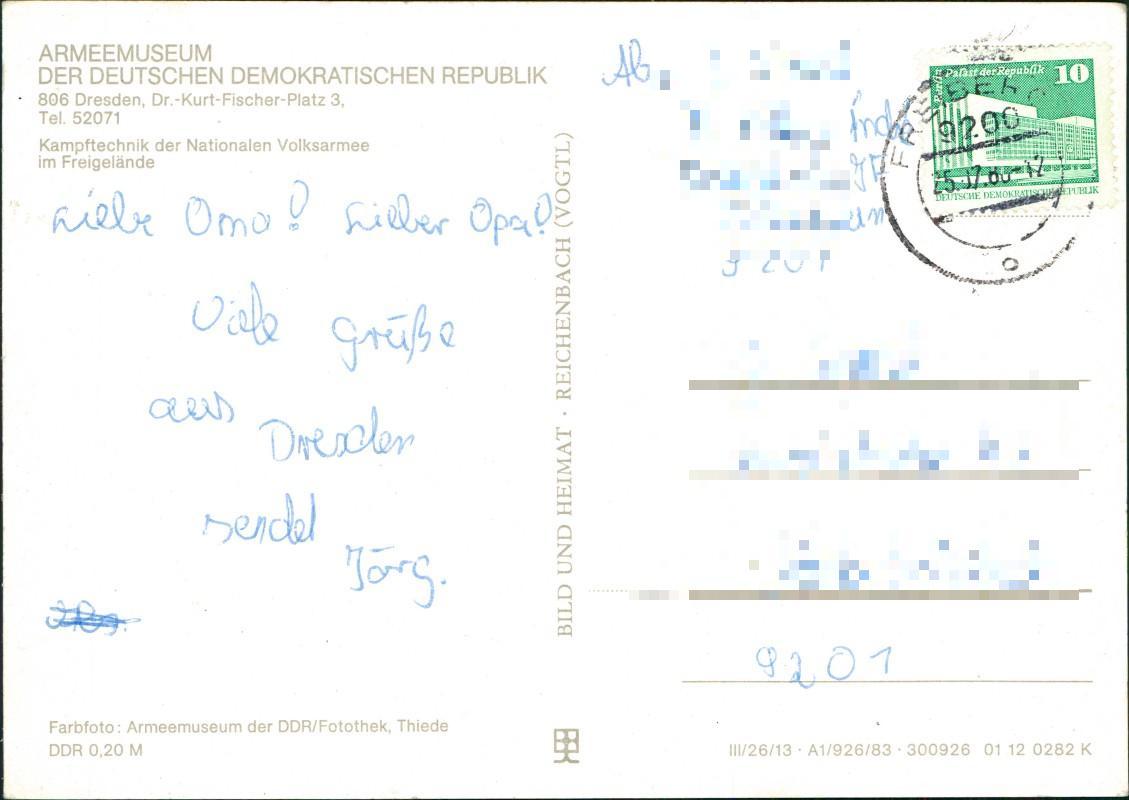 ARMEEMUSEUM
DER DEUTSCHEN DEMOKRATISCHEN REPUBLIK
806 Dresden, Dr.-Kurt-Fischer-Platz 3,
Tel. 52071
Kampftechnik der Nationalen Volksarmee
im Freigelände
Liebe Oma! Lieber Opa!
Viele Grüße
aus
Dresden
sendet
Jörg.
Farbfoto: Armeemuseum der DDR/Fotothek, Thiede
DDR 0,20 M
BILD UND HEIMAT · REICHENBACH (VOGTL)
Ab.
Palast der Republik 10
DEUTSCHE DEMOKRATISCHE REPUBLIK
FREIBERG
9200
9201
9201
III/26/13 · A1/926/83 · 300926 01 12 0282 K